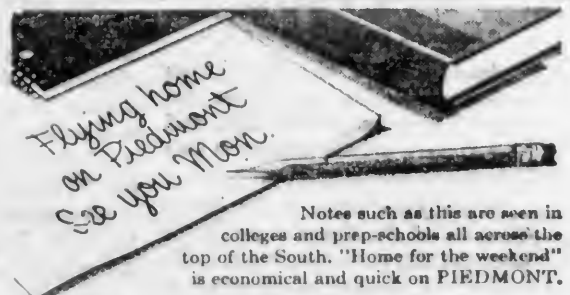 Flying home
on Piedmont
See you Mon.
Notes such as this are seen in
colleges and prep-schools all across the
top of the South. "Home for the weekend"
is economical and quick on PIEDMONT.